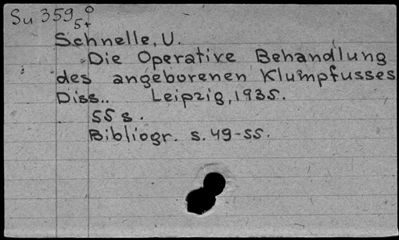 Su 359 5+
Schnelle, U.
Die Operative Behandlung
des angeborenen Klumpfusses
Diss.. Leipzig, 1935.
55 s.
Bibliogr. s. 49-55.